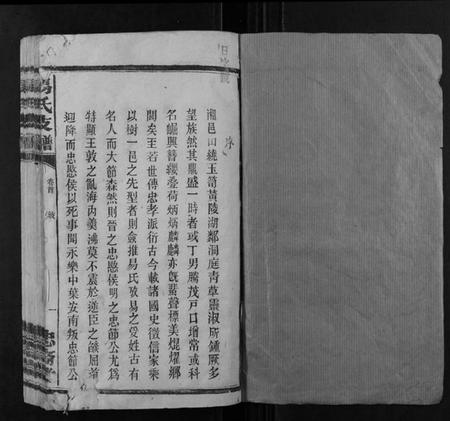 序
湘邑田繞玉笥黃陵湖鄰洞庭青草靈淑所鍾厥多
望族然其鼎盛一時者或丁男騰茂戸口增常或科
名崛興簪纓叠荷炳炳麟麟亦旣蜚聲標美焜燿鄉
閭矣至若世傳忠孝派衍古今載諸國史徵信家乘
以樹一邑之先型者則僉推易氏攷易之受姓古有
名人而大節森然則晉之忠愍侯明之忠節公尤爲
特顯王敦之亂海內羙沸莫不震於逆臣之燄屈膝
迎降而忠愍侯以死事聞永樂中葉安南叛忠節公
易氏支譜
卷首